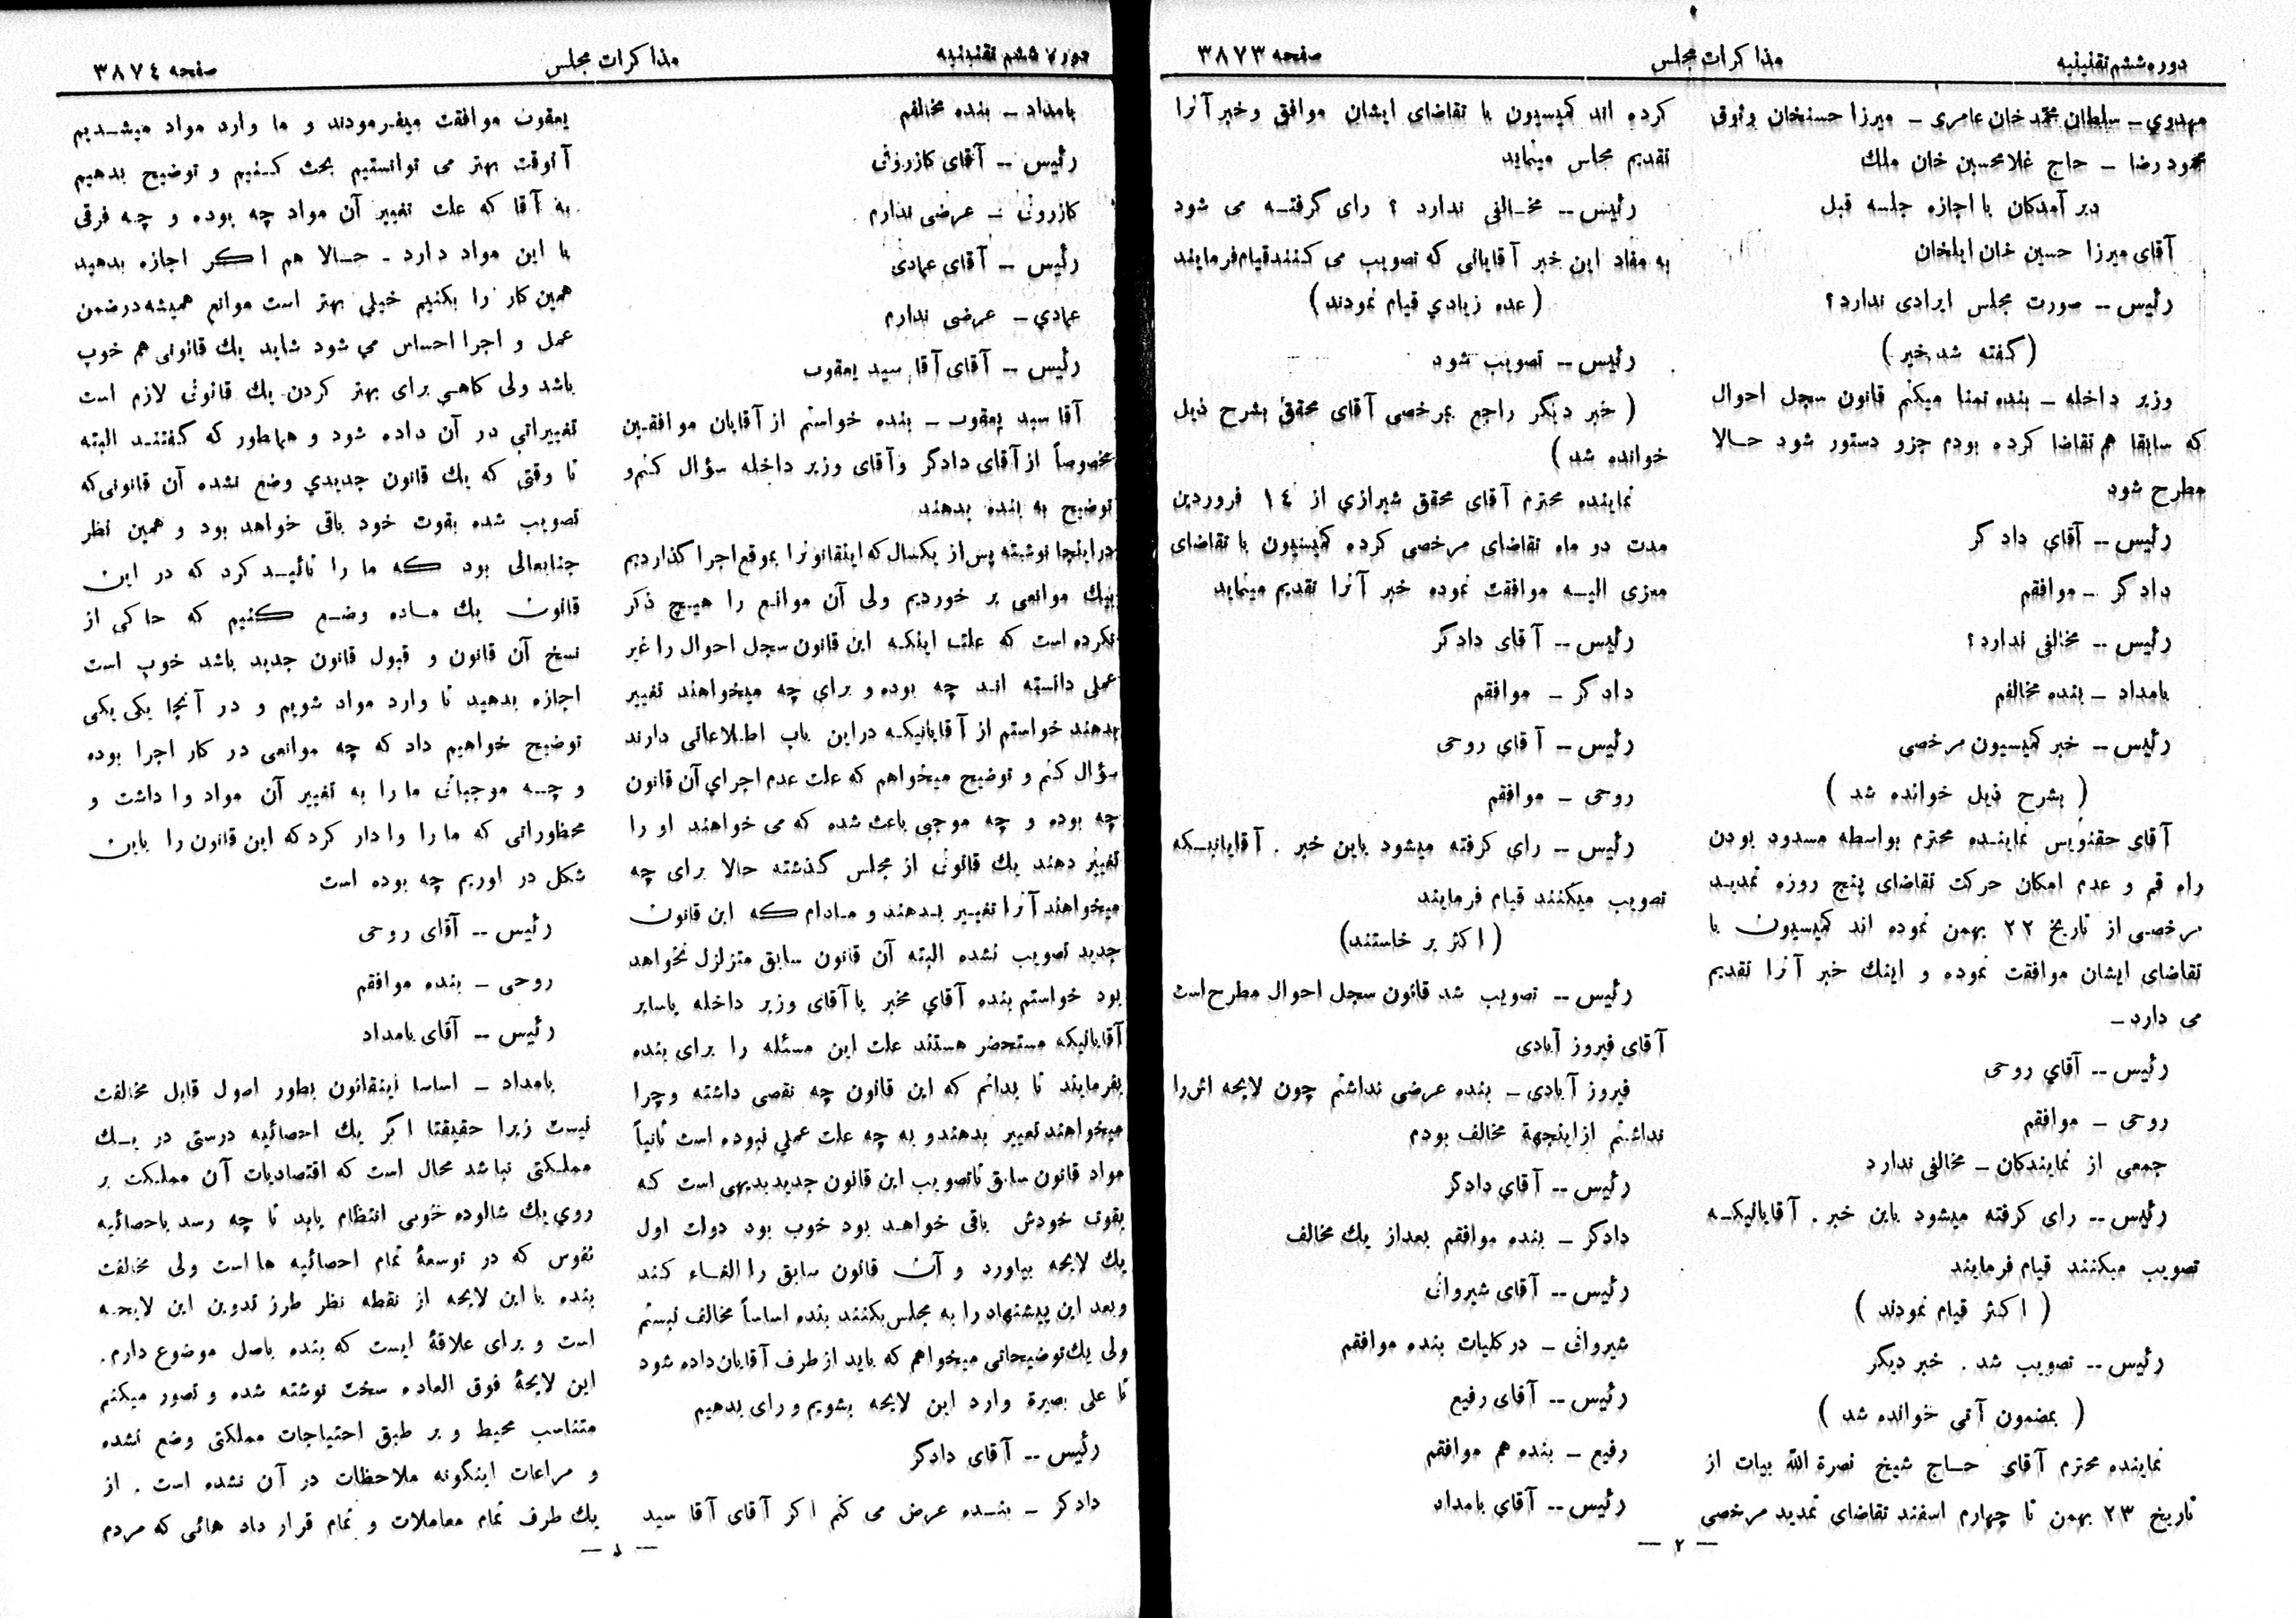 دوره ششم تقنینیه
مذاکرات مجلس
صفحه ۳۸۷۳
مهدوي ــ سلطان محمد خان عامری ــ میرزا حسنخان وثوقی
محمود رضا ــ حاج غلامحسین خان ملك
دیر آمدگان با اجازه جلسه قبل
آقای میرزا حسین خان ایلخان
رئیس ــ صورت مجلس ایرادی ندارد؟
(گفته شد خیر)
وزیر داخله ــ بنده تمنا میکنم قانون سجل احوال
که سابقا هم تقاضا کرده بودم جزو دستور شود حالا
مطرح شود
رئیس ــ آقاي دادگر
دادگر ــ موافقم
رئیس ــ مخالفی ندارد؟
یامداد ــ بنده مخالفم
رئیس ــ خبر کمیسیون مرخصی
( بشرح ذیل خوانده شد )
آقای حقنویس نماینده محترم بواسطه مسدود بودن
راه قم و عدم امکان حرکت تقاضای پنج روزه تمدید
مرخصی از تاریخ ۲۲ بهمن نموده اند کمیسیون با
تقاضای ایشان موافقت نموده و اینك خبر آنرا تقدیم
می دارد ــ
رئیس ــ آقاي روحی
روحی ــ موافقم
جمعی از نمایندگان ــ مخالفی ندارد
رئیس ــ رای گرفته میشود باین خبر . آقایانیکه
تصویب میکنند قیام فرمایند
( اکثر قیام نمودند )
رئیس ــ تصویب شد . خبر دیگر
( بمضمون آتی خوانده شد )
نماینده محترم آقای حاج شیخ نصرة الله بیات از
تاریخ ۲۳ بهمن تا چهارم اسفند تقاضای تمدید مرخصی
کرده اند کمیسیون با تقاضای ایشان موافق وخبر آنرا
تقدیم مجلس مینماید
رئیس ــ مخالفی ندارد ؟ رای گرفته می شود
به مفاد این خبر آقایانی که تصویب می کنند قیام فرمایند
(عده زیادي قیام نمودند)
رئیس ــ تصویب شود
( خبر دیگر راجع بمرخصی آقای محقق بشرح ذیل
خوانده شد )
نماینده محترم آقای محقق شیرازي از ١٤ فروردین
مدت دو ماه تقاضای مرخصی کرده کمیسیون با تقاضای
معزی الیه موافقت نموده خبر آنرا تقدیم مینماید
رئیس ــ آقای دادگر
دادگر ــ موافقم
رئیس ــ آقاي روحی
روحی ــ موافقم
رئیس ــ راي گرفته میشود باین خبر . آقایانیکه
تصویب میکنند قیام فرمایند
(اکثر بر خاستند)
رئیس ــ تصویب شد قانون سجل احوال مطرح است
آقای فیروز آبادی
فیروز آبادی ــ بنده عرضی نداشتم چون لایحه اش را
نداشتم از اینجهة مخالف بودم
رئیس ــ آقاي دادگر
دادگر ــ بنده موافقم بعد از یك مخالف
رئیس ــ آقای شیروانی
شیروانی ــ در کلیات بنده موافقم
رئیس ــ آقای رفیع
رفیع ــ بنده هم موافقم
رئیس ــ آقاي یامداد
ــ ۲ ــ
دوره ششم تقنینیه
مذاکرات مجلس
صفحه ۳۸۷٤
یامداد ــ بنده مخالفم
رئیس ــ آقای کازرونی
کازرونی ــ عرضی ندارم
رئیس ــ آقای عمادی
عمادي ــ عرضی ندارم
رئیس ــ آقای آقا سید یعقوب
آقا سید یعقوب ــ بنده خواستم از آقایان موافقین
مخصوصاً از آقای دادگر و آقای وزیر داخله سؤال کنم و
توضیح به بنده بدهند
در اینجا نوشته پس از یکسال که اینقانونرا بموقع اجرا گذاردیم
بیك موانعی بر خوردیم ولی آن موانع را هیچ ذکر
نکرده است که علت اینکه این قانون سجل احوال را غیر
عملی دانسته اند چه بوده و براي چه میخواهند تغییر
بدهند خواستم از آقایانیکه در این باب اطلاعاتی دارند
سؤال کنم و توضیح میخواهم که علت عدم اجراي آن قانون
چه بوده و چه موجبی باعث شده که می خواهند او را
تغییر دهند یك قانونی از مجلس گذشته حالا برای چه
میخواهند آنرا تغییر بدهند و مادام که این قانون
جدید تصویب نشده البته آن قانون سابق متزلزل نخواهد
بود خواستم بنده آقاي مخبر یا آقای وزیر داخله یا سایر
آقایانیکه مستحضر هستند علت این مسئله را برای بنده
بفرمایند تا بدانم که این قانون چه نقصی داشته و چرا
میخواهند تغییر بدهند و به چه علت عملي نبوده است ثانیاً
مواد قانون سابق تا تصویب این قانون جدید بدیهی است که
بقوت خودش باقی خواهد بود خوب بود دولت اول
یك لایحه بیاورد و آن قانون سابق را الغاء کند
و بعد این پیشنهاد را به مجلس بکنند بنده اساساً مخالف نیستم
ولی یك توضیحاتی میخواهم که باید از طرف آقایان داده شود
تا علی بصیرة وارد این لایحه بشویم و رای بدهیم
رئیس ــ آقای دادگر
دادگر ــ بنده عرض می کنم اگر آقای آقا سید
یعقوب موافقت میفرمودند و ما وارد مواد میشدیم
آنوقت بهتر می توانستیم بحث کنیم و توضیح بدهیم
به آقا که علت تغییر آن مواد چه بوده و چه فرقی
با این مواد دارد ــ حالا هم اگر اجازه بدهید
همین کار را بکنیم خیلی بهتر است موانع همیشه در ضمن
عمل و اجرا احساس مي شود شاید یك قانونی هم خوب
باشد ولی گاهی برای بهتر کردن یك قانونی لازم است
تغییراتی در آن داده شود و همانطور که گفتند البته
تا وقتی که یك قانون جدیدي وضع نشده آن قانونی که
تصویب شده بقوت خود باقی خواهد بود و همین نظر
جنابعالی بود که ما را تائید کرد که در این
قانون یك ماده وضع کنیم که حاکی از
نسخ آن قانون و قبول قانون جدید باشد خوب است
اجازه بدهید تا وارد مواد شویم و در آنجا یکی یکی
توضیح خواهیم داد که چه موانعی در کار اجرا بوده
و چه موجباتی ما را به تغییر آن مواد وا داشت و
محظوراتی که ما را وادار کرد که این قانون را باین
شکل در اوریم چه بوده است
رئیس ــ آقای روحی
روحی ــ بنده موافقم
رئیس ــ آقای یامداد
یامداد ــ اساسا اینقانون بطور اصول قابل مخالفت
نیست زیرا حقیقتا اگر یك احصائیه درستی در یك
مملکتی نباشد محال است که اقتصادیات آن مملکت بر
روي یك شالوده خوبی انتظام یابد تا چه رسد باحصائیه
نفوس که در توسعهٔ تمام احصائیه ها است ولی مخالفت
بنده با این لایحه از نقطه نظر طرز تدوین این لایحه
است و برای علاقهٔ ایست که بنده باصل موضوع دارم.
این لایحهٔ فوق العاده سخت نوشته شده و تصور میکنم
متناسب محیط و بر طبق احتیاجات مملکتی وضع نشده
و مراعات اینگونه ملاحظات در آن نشده است . از
یك طرف تمام معاملات و تمام قرار داد هائی که مردم